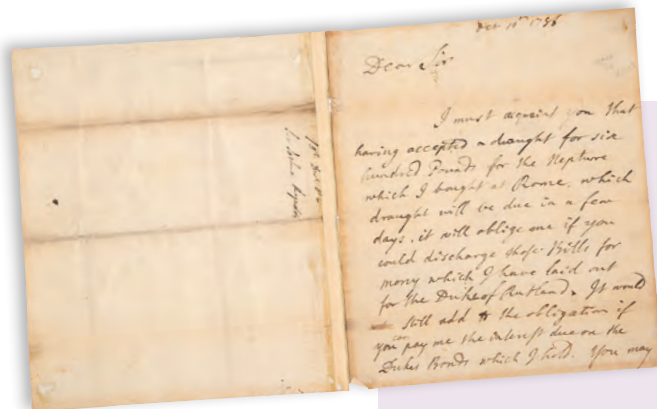 Oct 10th 1786
Dear Sir
I must acquaint you that
having accepted a draught for six
hundred Pounds for the Neptune
which I bought at Rome, which
draught will be due in a few
days, it will oblige me if you
could discharge those Bills for
mony which I have laid out
for the Duke of Rutland. It would
still add to the obligation if
you can pay me the interest due on the
Dukes Bonds which I hold. You may
Sir Joshua